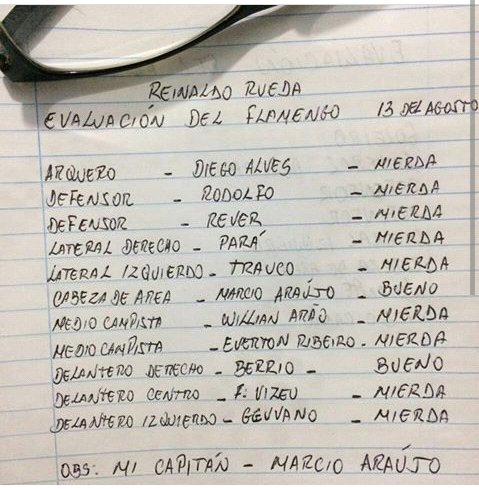 REINALDO RUEDA
EVALUACIÓN DEL FLAMENGO 13 DEL AGOSTO
ARQUERO - DIEGO ALVES - MIERDA
DEFENSOR - RODOLFO - MIERDA
DEFENSOR - REVER - MIERDA
LATERAL DERECHO - PARÁ - MIERDA
LATERAL IZQUIERDO - TRAUCO - MIERDA
CABEZA DE AREA - MARCIO ARAÚJO - BUENO
MEDIO CAMPISTA - WILLIAN ARÃO - MIERDA
MEDIO CAMPISTA - EVERTON RIBEIRO - MIERDA
DELANTERO DERECHO - BERRIO - BUENO
DELANTERO CENTRO - F. VIZEU - MIERDA
DELANTERO IZQUIERDO - GEUVANO - MIERDA
OBS: MI CAPITÁN - MARCIO ARAÚJO